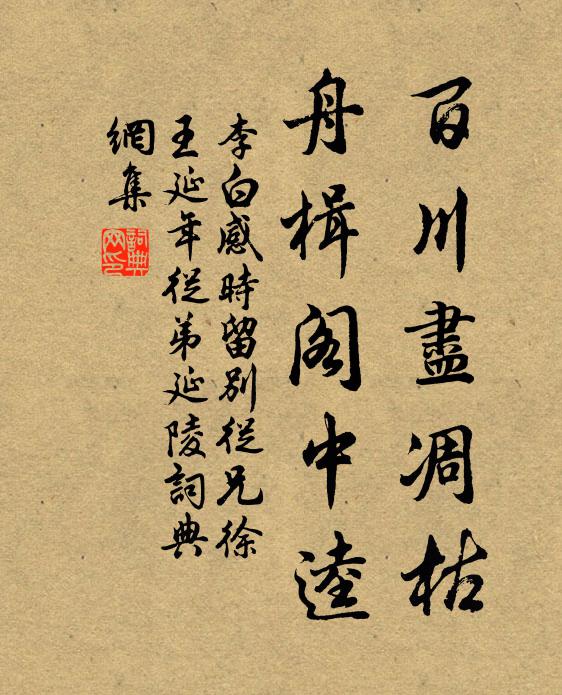 百川盡凋枯
舟楫阁中逵
李白感時留別從兄徐
王延年從弟延陵詞典
網集
詞典
网印